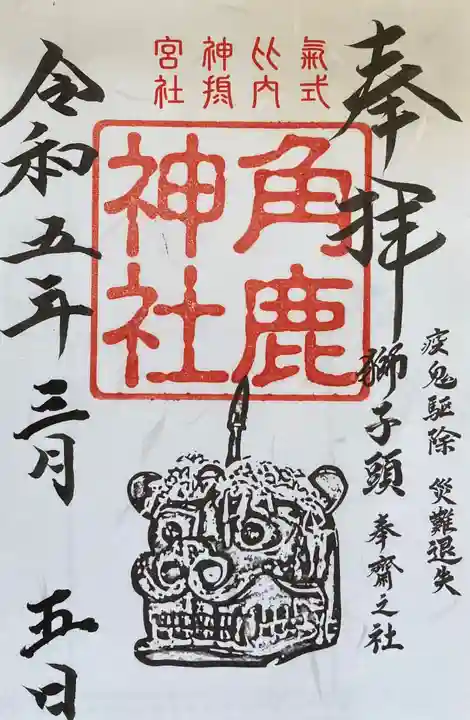 奉拝
疫鬼駆除 災難退失
獅子頭 奉齋之社
氣比神宮
式内摂社
角鹿
神社
令和五年三月 五日